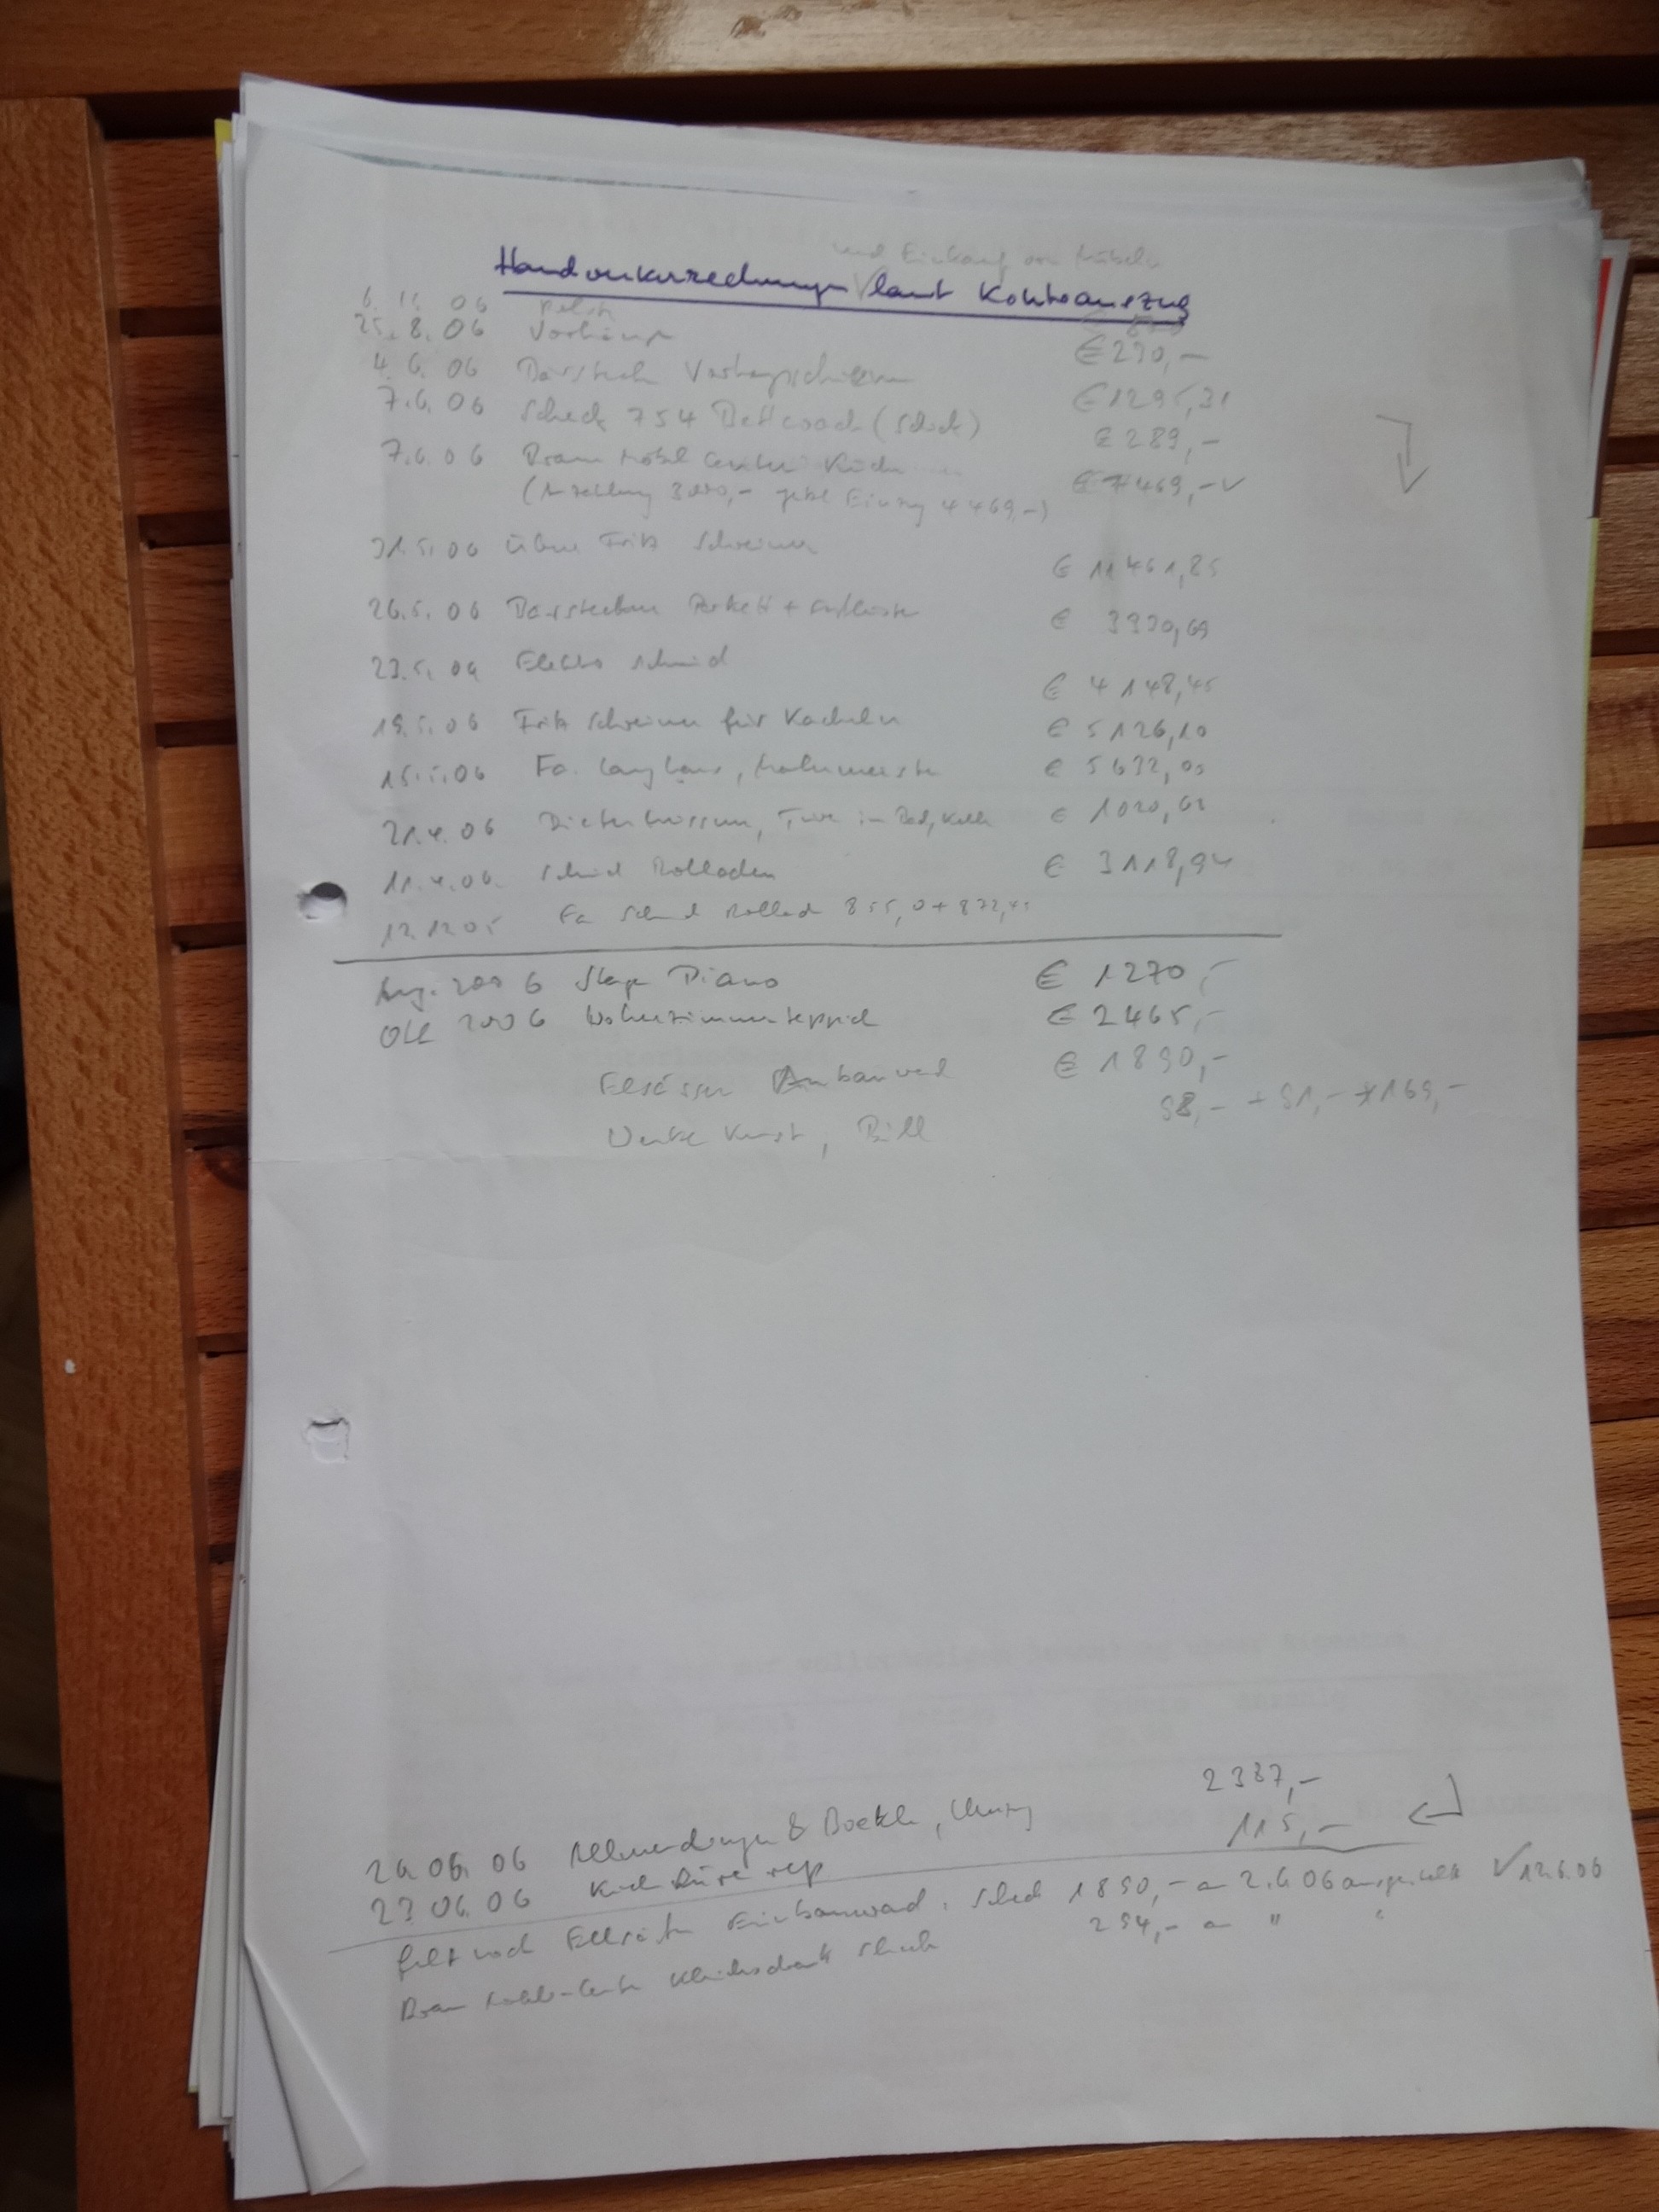 und Einkauf von Möbeln
Handwerkerrechnungen laut Kontoauszug
6. 11. 06
25.8.06 Vorhänge € 290,-
4.6.06 Vorhangschienen € 1295,31
7.6.06 Scheck 754 Bettcouch (Scheck) € 289,-
7.6.06 Braun Möbel Center Küche € 7469,- ✓
(Anzahlung 3000,- jetzt Einzug 4469,-)
31.5.06 über Fritz Schreiner € 11461,85
26.5.06 Parkett + € 3930,69
23.5.06 Elektro Schmid € 4148,45
19.5.06 Fritz Schreiner für Kacheln € 5126,10
15.5.06 Fa. Langhans, Malermeister € 5632,00
21.4.06 Türe im Bad, € 1020,62
11.4.06. Schmid Rolladen € 3118,94
12.12.05 Fa Schmid Rollad 855,0 +
Aug. 2006 Stage Piano € 1270,-
Okt 2006 Wohnzimmerteppich € 2465,-
Elsässer Anbauwand € 1890,-
Kunst, Bild 98,- + 91,- + 169,-
2387,-
26.06.06 Allmendinger &
115,-
27.06.06
fehlt noch Scheck 1890,- am 2.6.06 ausgestellt ✓ 12.6.06
Braun Möbel-Center Kleiderschrank Scheck 254,- am " "